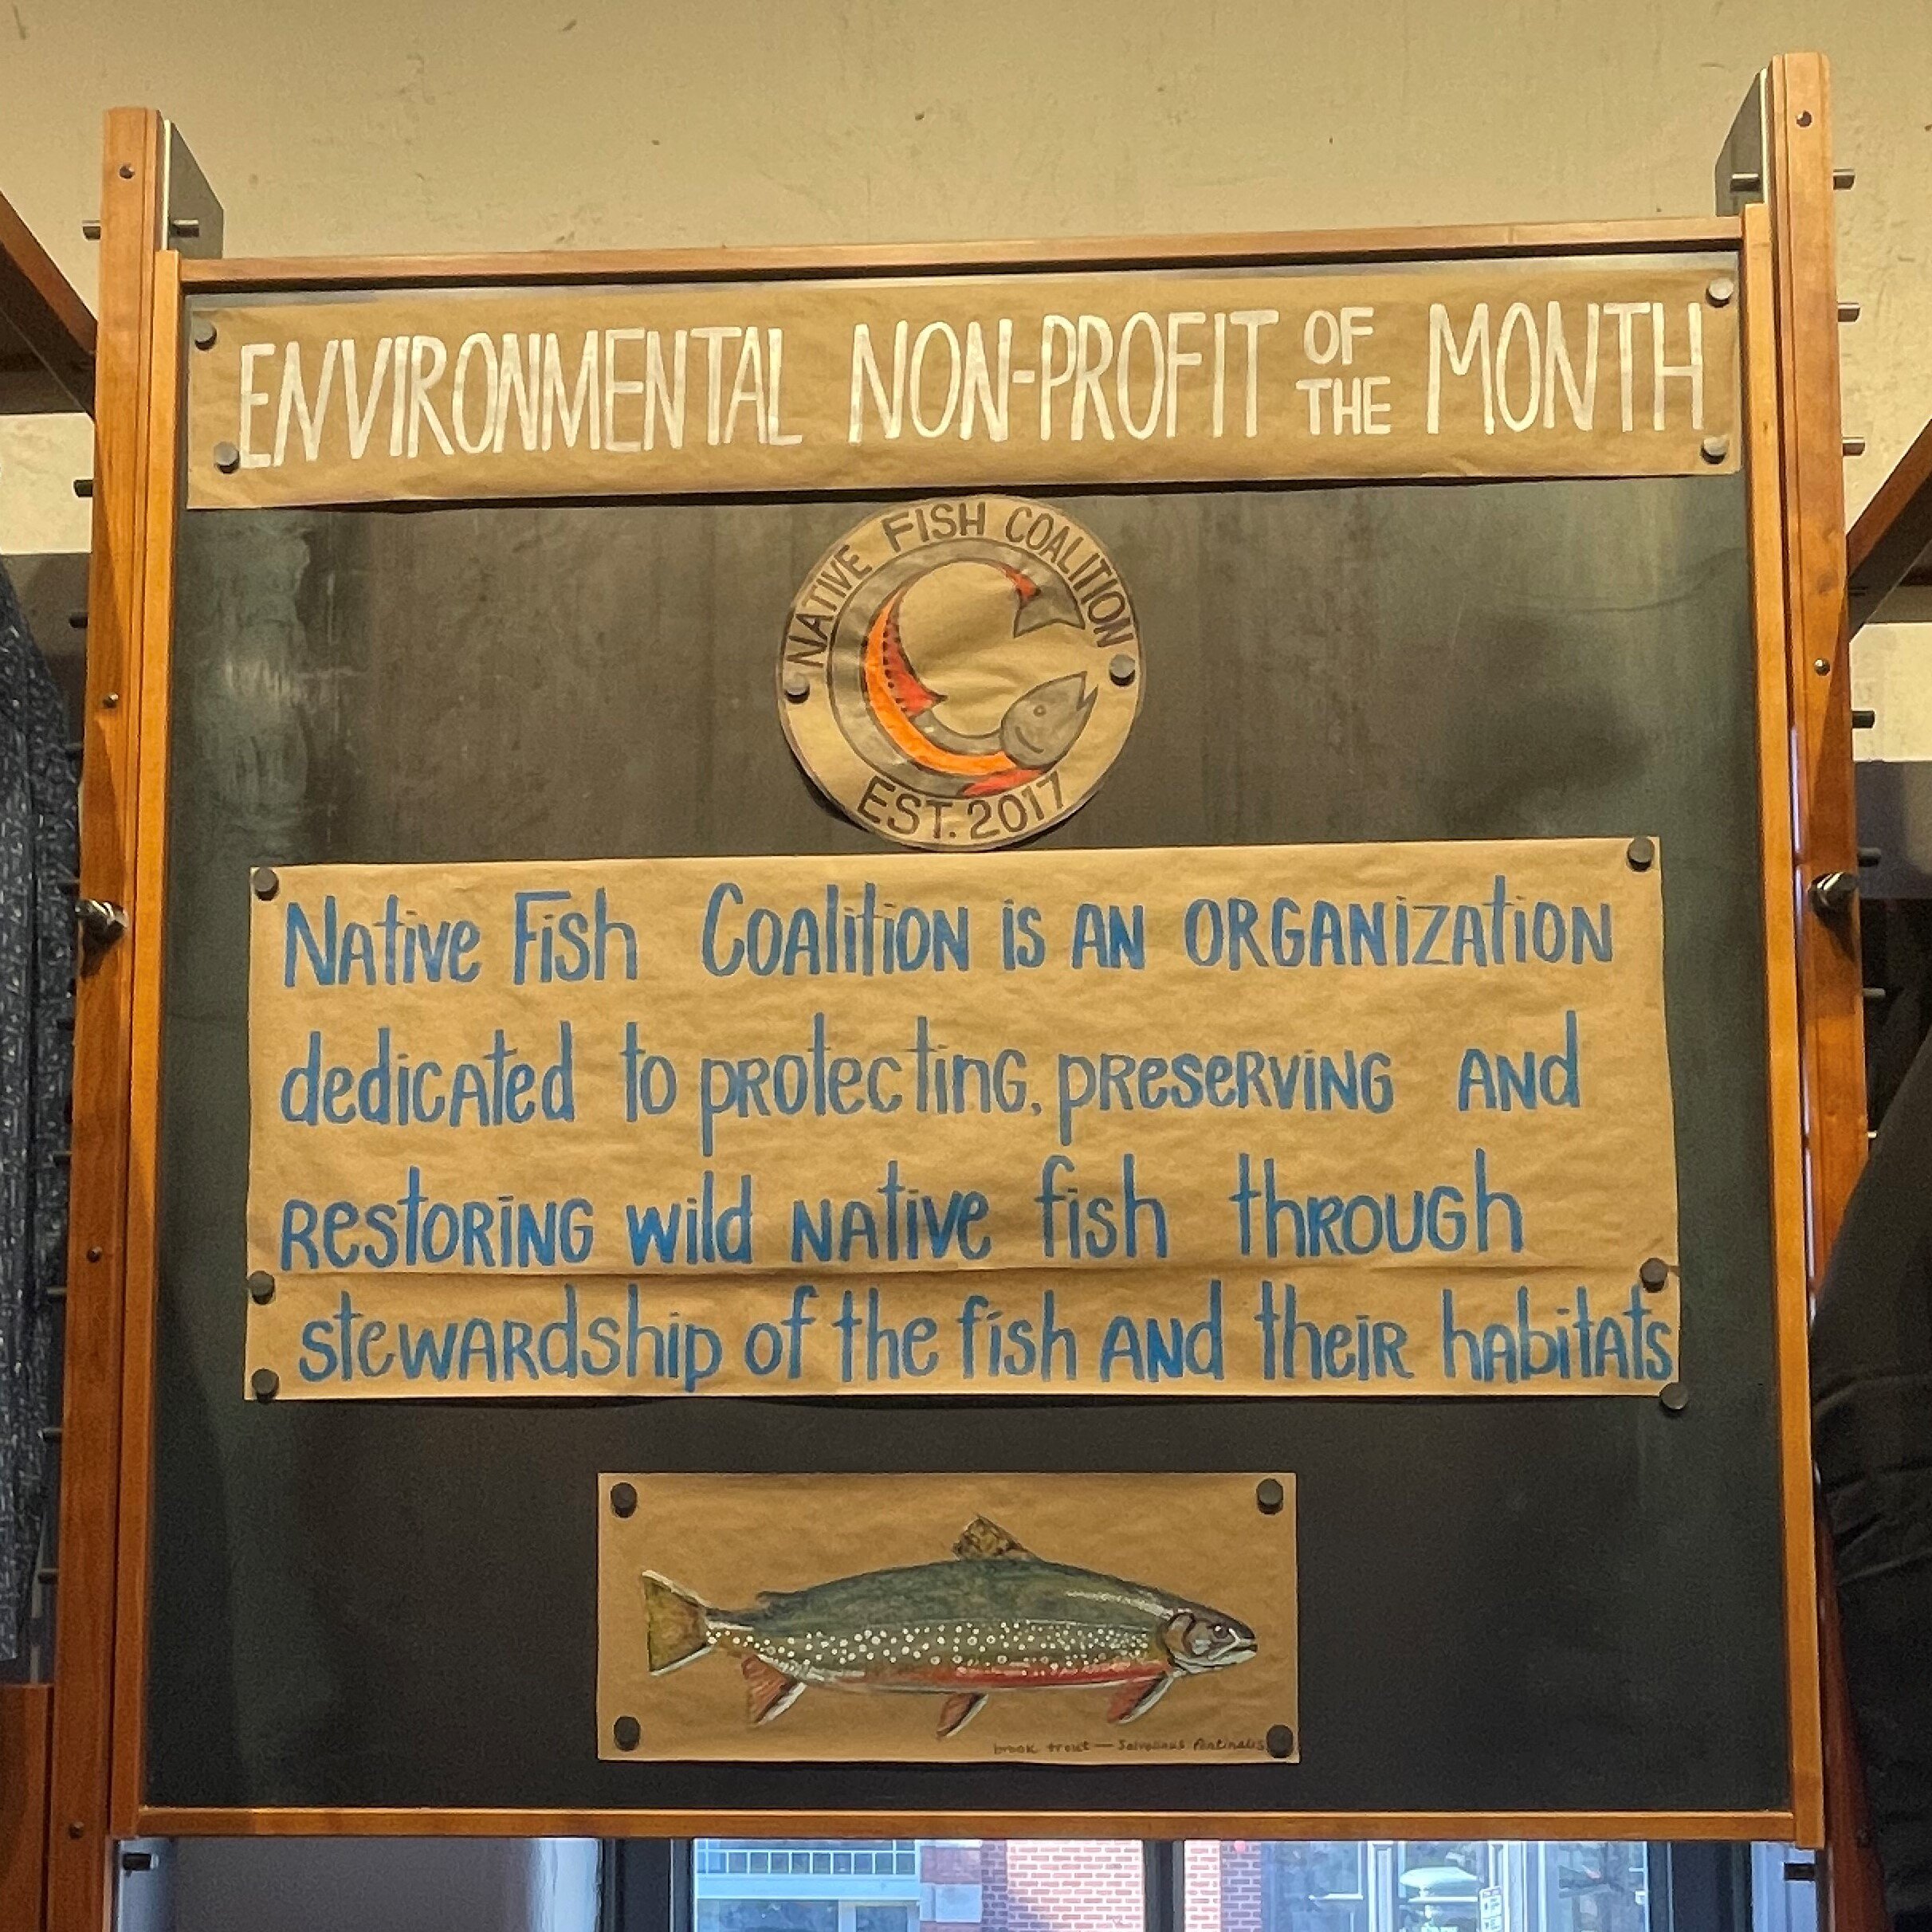 ENVIRONMENTAL NON-PROFIT OF THE MONTH
NATIVE FISH COALITION
EST. 2017
Native Fish Coalition is an organization
dedicated to protecting, preserving and
restoring wild native fish through
stewardship of the fish and their habitats
brook trout — Salvelinus Fontinalis